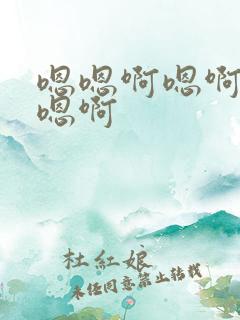 嗯嗯啊嗯啊
嗯啊
杜紅娘
未經同意禁止转载